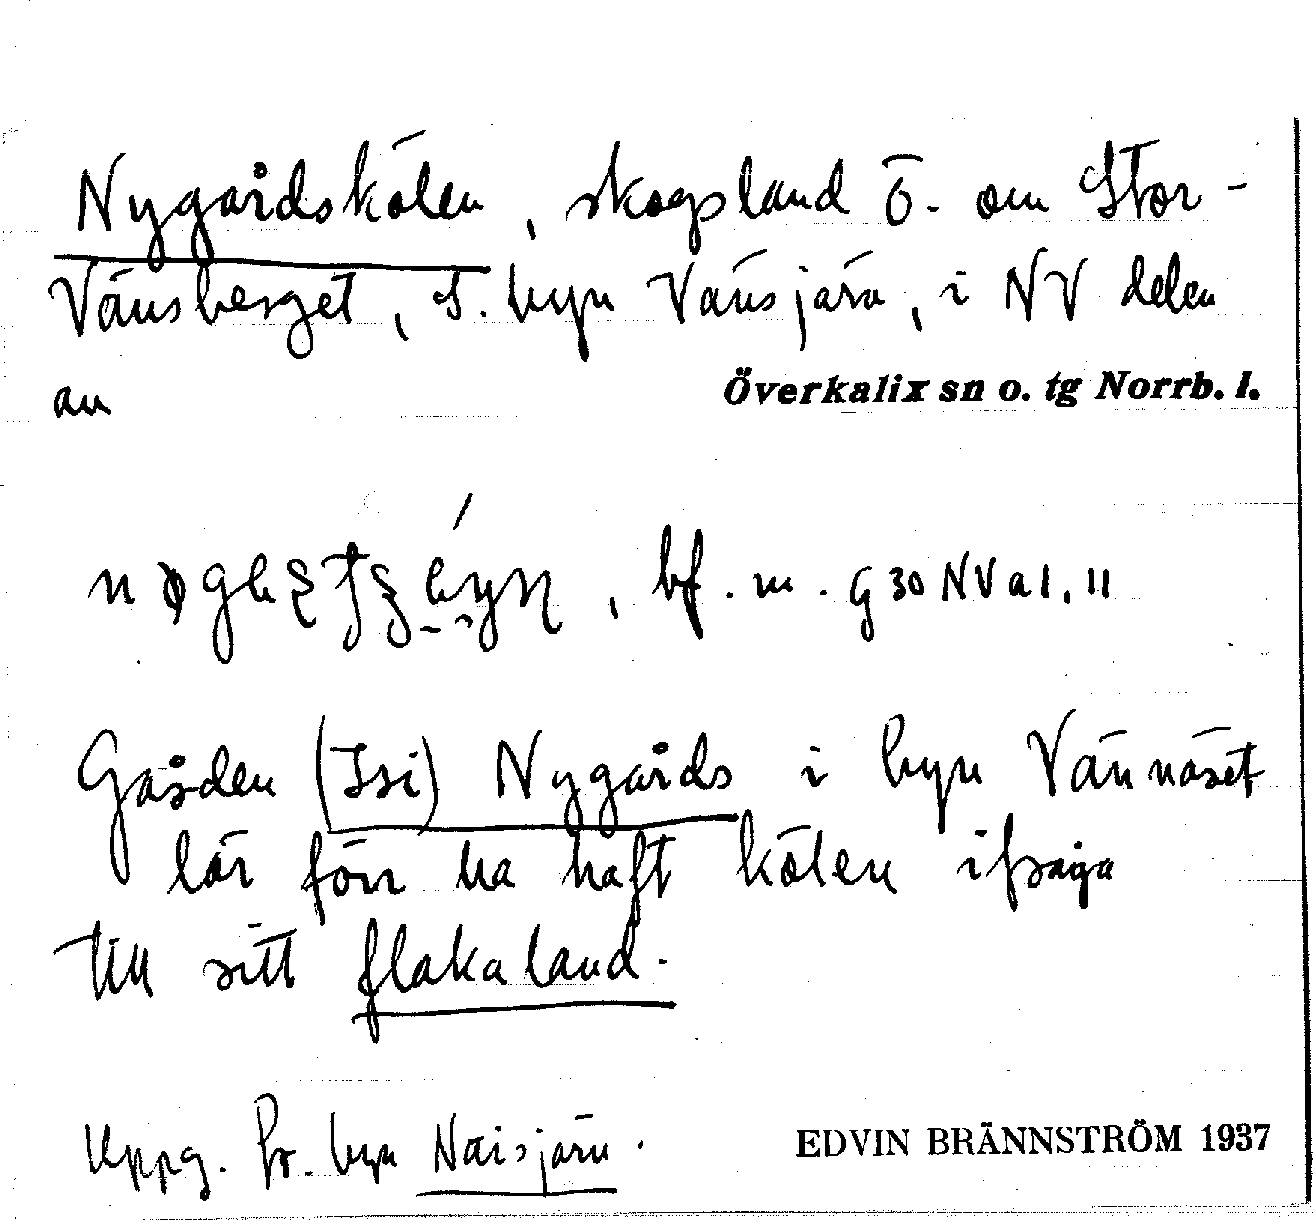 Nygårdskölen, skogsland ö. om Stor-
Vänsberget, S. byn Vänsjärv, i NV delen
av Överkalix sn o. tg Norrb. l.
bf. m. G 30 NV a 1. 11
Gården (Isi) Nygårds i byn Vännäset
lär förr ha haft kölen ifråga
till sitt flakaland.
Uppg. fr. byn Naisjärv.
EDVIN BRÄNNSTRÖM 1937